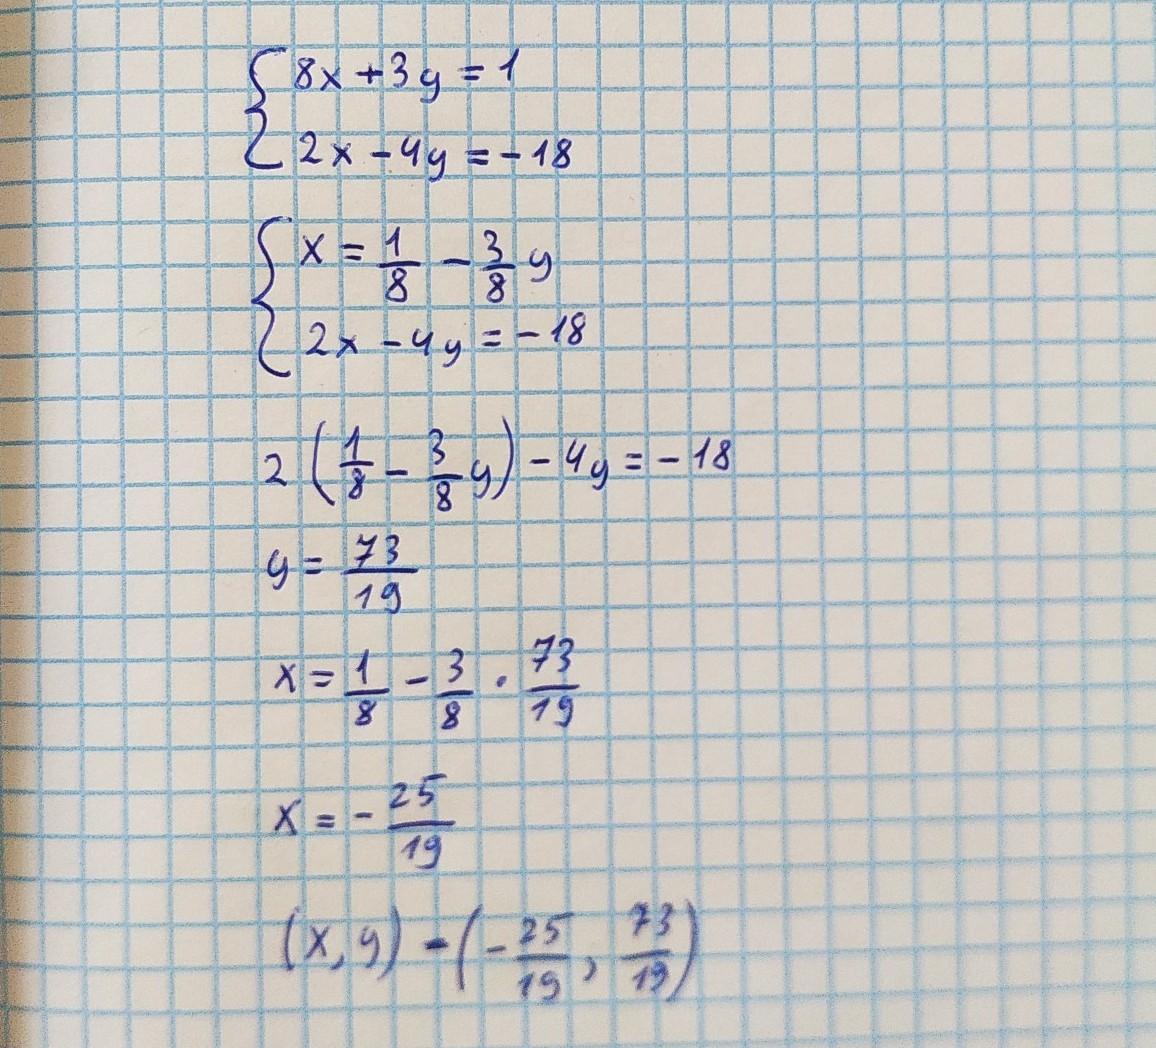 8x + 3y = 1
2x - 4y = -18
x = 1/8 - 3/8 y
2x - 4y = -18
2 (1/8 - 3/8 y) - 4y = -18
y = 73/19
x = 1/8 - 3/8 · 73/19
x = - 25/19
(x, y) - (- 25/19, 73/19)